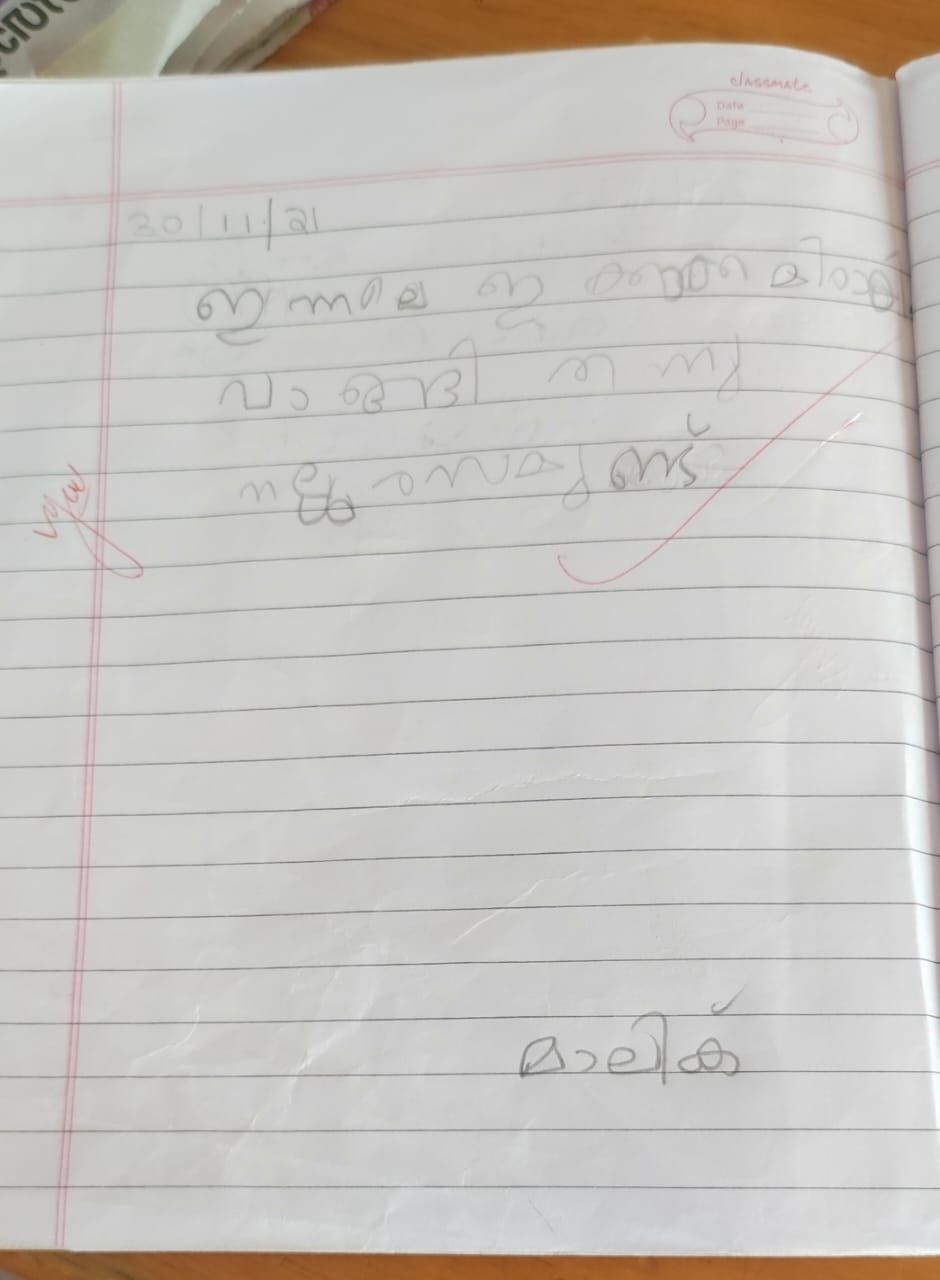 classmate
Date
Page
30/11/21
ഇന്നലെ ഇ
വാങ്ങി തന്നു
നല്ല രസമുണ്ട്
മാലിക്